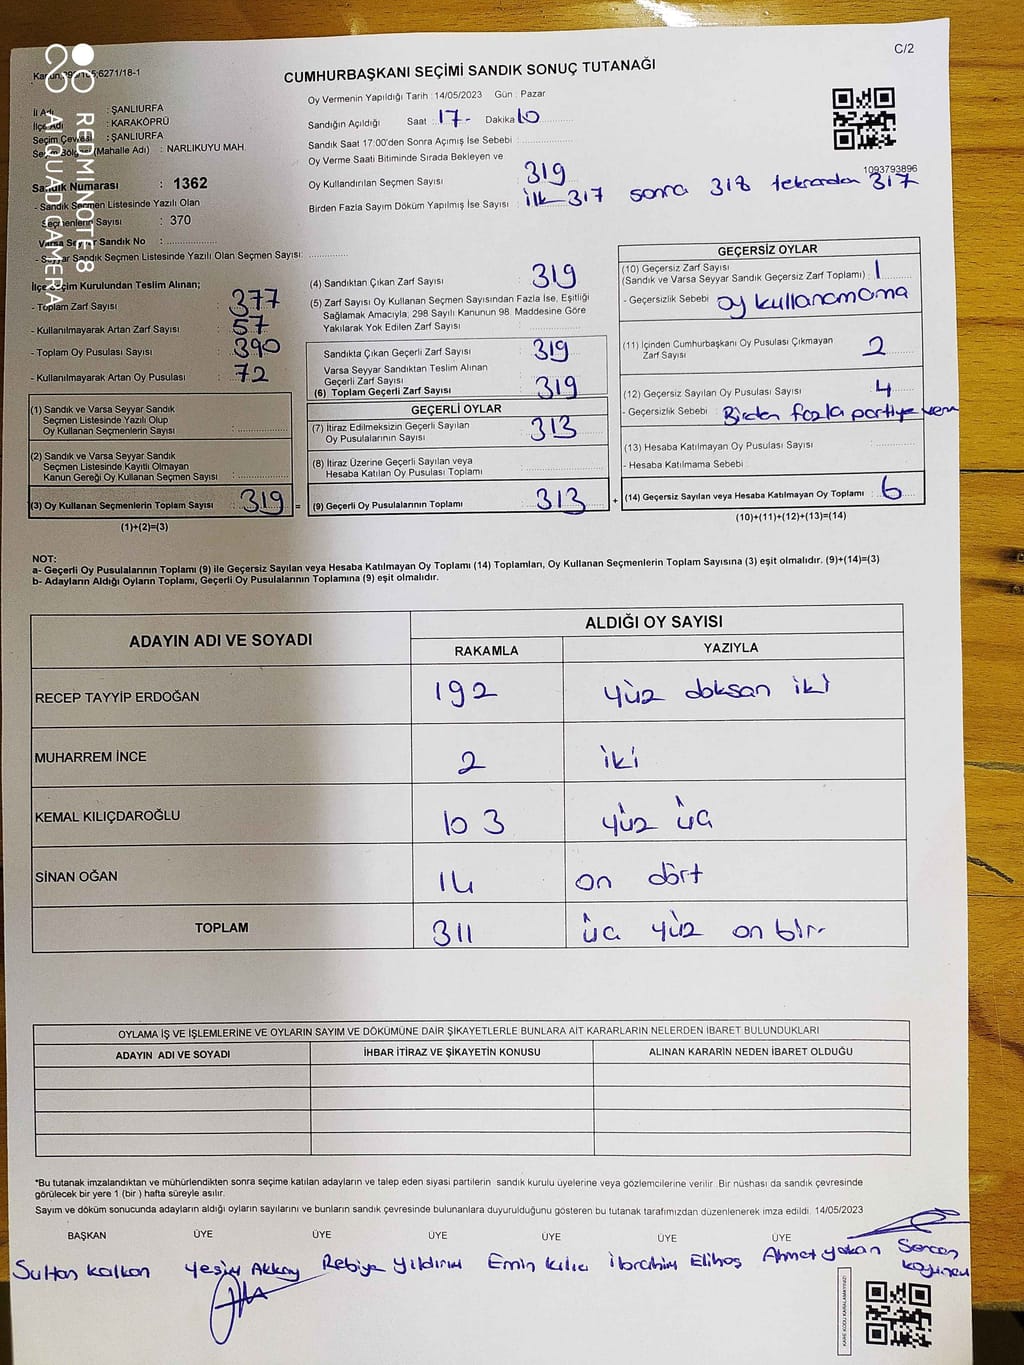 C/2
CUMHURBAŞKANI SEÇİMİ SANDIK SONUÇ TUTANAĞI
6271/18-1
İl Adı : ŞANLIURFA
İlçe Adı : KARAKÖPRÜ
Seçim Çevresi : ŞANLIURFA
Seçim Bölgesi (Mahalle Adı) : NARLIKUYU MAH.
Sandık Numarası : 1362
- Sandık Seçmen Listesinde Yazılı Olan
Seçmenlerin Sayısı : 370
Varsa Seyyar Sandık No :
- Seyyar Sandık Seçmen Listesinde Yazılı Olan Seçmen Sayısı:
Oy Vermenin Yapıldığı Tarih : 14/05/2023 Gün : Pazar
Sandığın Açıldığı Saat : 17- Dakika 10
Sandık Saat 17:00'den Sonra Açımış İse Sebebi :
Oy Verme Saati Bitiminde Sırada Bekleyen ve
Oy Kullandırılan Seçmen Sayısı : 319
Birden Fazla Sayım Döküm Yapılmış İse Sayısı : ilk 317 sonra 318 tekrardan 317
1093793896
REDMI NOTE 8
AI QUAD CAMERA
İlçe Seçim Kurulundan Teslim Alınan;
- Toplam Zarf Sayısı : 377
- Kullanılmayarak Artan Zarf Sayısı : 57
- Toplam Oy Pusulası Sayısı : 390
- Kullanılmayarak Artan Oy Pusulası : 72
(1) Sandık ve Varsa Seyyar Sandık
Seçmen Listesinde Yazılı Olup
Oy Kullanan Seçmenlerin Sayısı :
(2) Sandık ve Varsa Seyyar Sandık
Seçmen Listesinde Kayıtlı Olmayan
Kanun Gereği Oy Kullanan Seçmen Sayısı :
(3) Oy Kullanan Seçmenlerin Toplam Sayısı : 319 =
(1)+(2)=(3)
(4) Sandıktan Çıkan Zarf Sayısı : 319
(5) Zarf Sayısı Oy Kullanan Seçmen Sayısından Fazla İse, Eşitliği
Sağlamak Amacıyla, 298 Sayılı Kanunun 98. Maddesine Göre
Yakılarak Yok Edilen Zarf Sayısı :
Sandıkta Çıkan Geçerli Zarf Sayısı : 319
Varsa Seyyar Sandıktan Teslim Alınan
Geçerli Zarf Sayısı
(6) Toplam Geçerli Zarf Sayısı : 319
GEÇERLİ OYLAR
(7) İtiraz Edilmeksizin Geçerli Sayılan
Oy Pusulalarının Sayısı : 313
(8) İtiraz Üzerine Geçerli Sayılan veya
Hesaba Katılan Oy Pusulası Toplamı :
(9) Geçerli Oy Pusulalarının Toplamı : 313 +
GEÇERSİZ OYLAR
(10) Geçersiz Zarf Sayısı
(Sandık ve Varsa Seyyar Sandık Geçersiz Zarf Toplamı) : 1
- Geçersizlik Sebebi : oy kullanamama
(11) İçinden Cumhurbaşkanı Oy Pusulası Çıkmayan
Zarf Sayısı : 2
(12) Geçersiz Sayılan Oy Pusulası Sayısı : 4
- Geçersizlik Sebebi : Birden fazla partiye
(13) Hesaba Katılmayan Oy Pusulası Sayısı :
- Hesaba Katılmama Sebebi :
(14) Geçersiz Sayılan veya Hesaba Katılmayan Oy Toplamı : 6
(10)+(11)+(12)+(13)=(14)
NOT:
a- Geçerli Oy Pusulalarının Toplamı (9) ile Geçersiz Sayılan veya Hesaba Katılmayan Oy Toplamı (14) Toplamları, Oy Kullanan Seçmenlerin Toplam Sayısına (3) eşit olmalıdır. (9)+(14)=(3)
b- Adayların Aldığı Oyların Toplamı, Geçerli Oy Pusulalarının Toplamına (9) eşit olmalıdır.
ADAYIN ADI VE SOYADI
ALDIĞI OY SAYISI
RAKAMLA YAZIYLA
RECEP TAYYİP ERDOĞAN 192 yüz doksan iki
MUHARREM İNCE 2 iki
KEMAL KILIÇDAROĞLU 103 yüz üç
SİNAN OĞAN 14 on dört
TOPLAM 311 üç yüz on bir
OYLAMA İŞ VE İŞLEMLERİNE VE OYLARIN SAYIM VE DÖKÜMÜNE DAİR ŞİKAYETLERLE BUNLARA AİT KARARLARIN NELERDEN İBARET BULUNDUKLARI
ADAYIN ADI VE SOYADI İHBAR İTİRAZ VE ŞİKAYETİN KONUSU ALINAN KARARIN NEDEN İBARET OLDUĞU
*Bu tutanak imzalandıktan ve mühürlendikten sonra seçime katılan adayların ve talep eden siyasi partilerin sandık kurulu üyelerine veya gözlemcilerine verilir. Bir nüshası da sandık çevresinde
görülecek bir yere 1 (bir ) hafta süreyle asılır.
Sayım ve döküm sonucunda adayların aldığı oyların sayılarını ve bunların sandık çevresinde bulunanlara duyurulduğunu gösteren bu tutanak tarafımızdan düzenlenerek imza edildi. 14/05/2023
BAŞKAN ÜYE ÜYE ÜYE ÜYE ÜYE ÜYE
Sultan Kalkan Yeşim Akkoy Rebiye Yıldırım Emin Kılıç İbrahim Elihoş Ahmet Yakan Sercan
KARE KODU KARALAMAYINIZ!